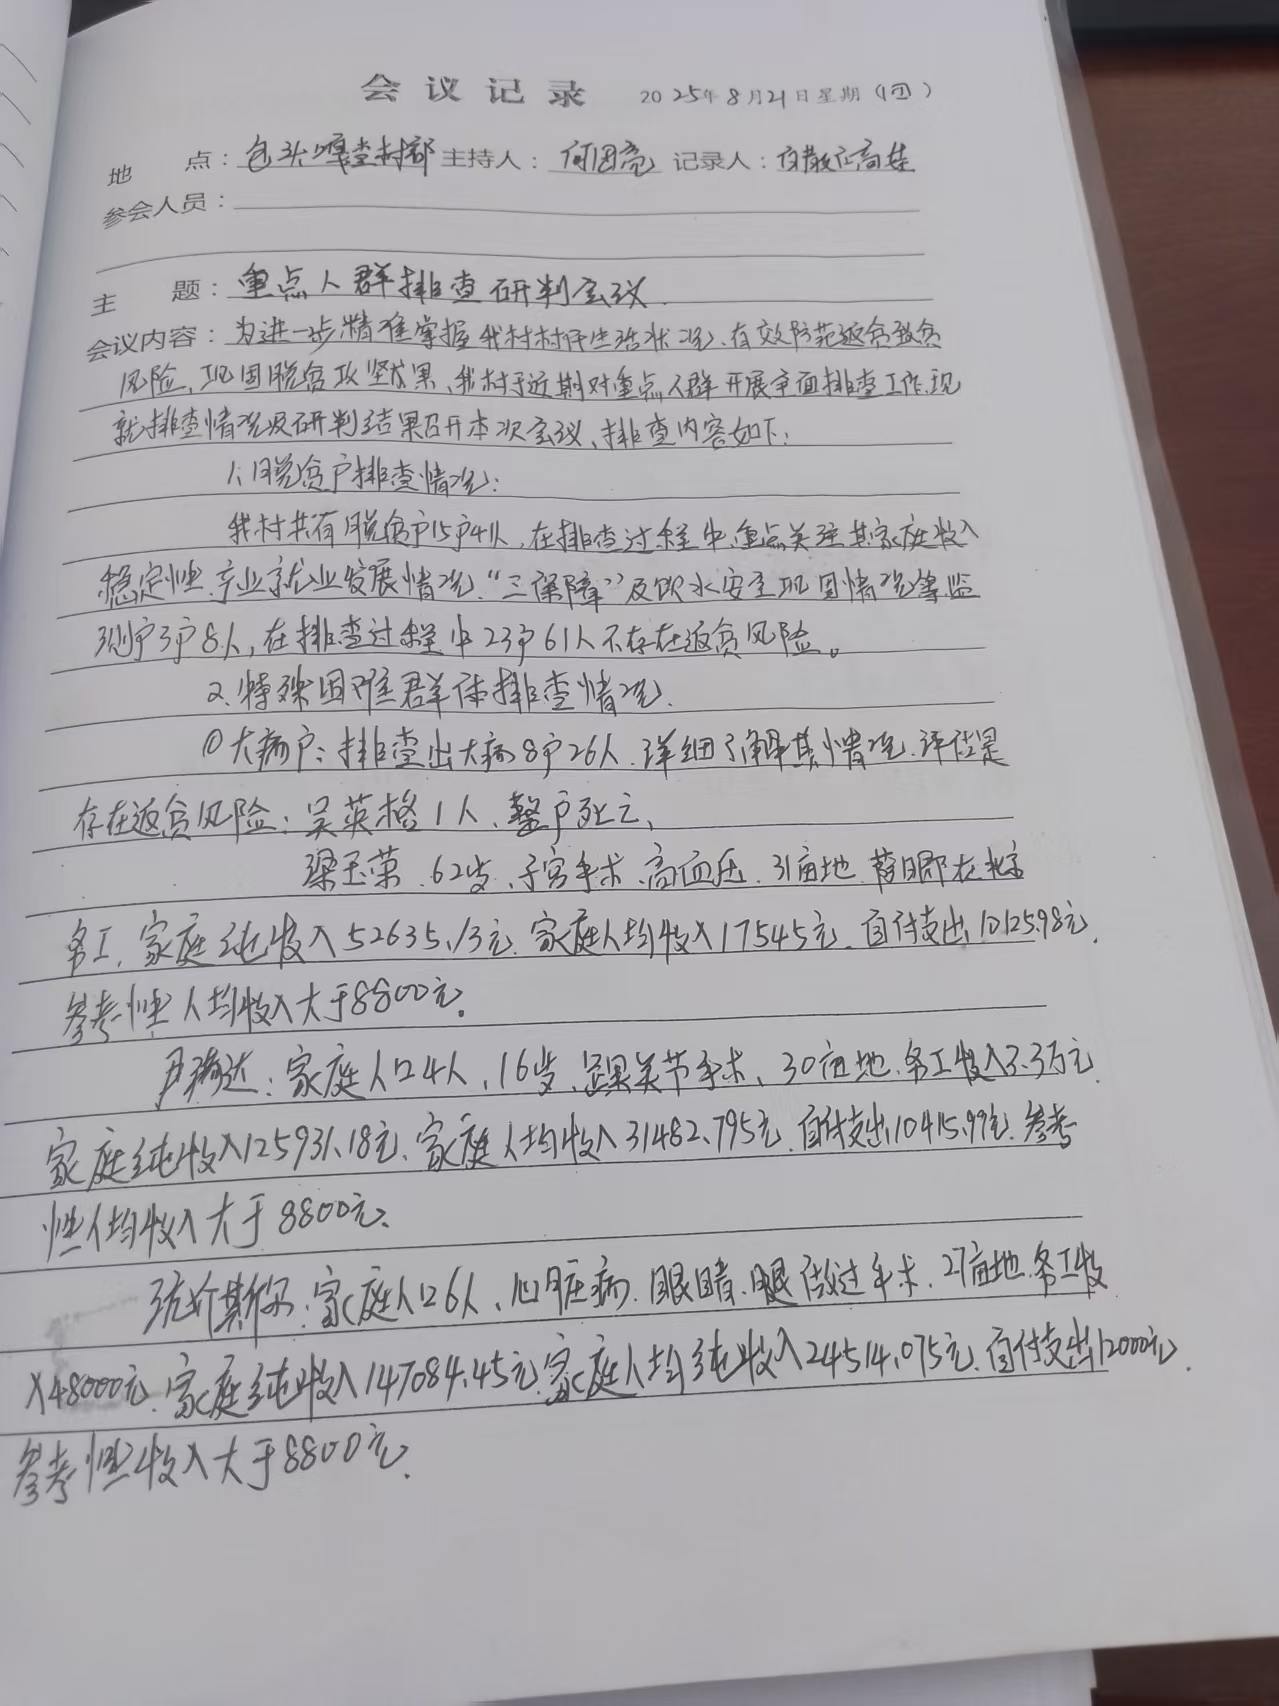 会议记录 2025年8月21日星期(四)
地 点：包头嘎查村部 主持人：何国亮 记录人：
参会人员：
主 题：重点人群排查研判会议.
会议内容：为进一步精准掌握我村村民生活状况、有效防范返贫致贫
风险,巩固脱贫攻坚成果,我村于近期对重点人群开展全面排查工作,现
就排查情况及研判结果召开本次会议、排查内容如下:
1、脱贫户排查情况:
我村共有脱贫户15户41人,在排查过程中,重点关注其家庭收入
稳定性、产业就业发展情况、“三保障”及饮水安全巩固情况等监
测户3户8人,在排查过程中23户61人不存在返贫风险。
2.特殊困难群体排查情况.
①大病户:排查出大病8户26人.详细了解其情况.评估是
存在返贫风险:吴英格1人、整户死亡、
梁玉荣.62岁、子宫手术、高血压.31亩地. 在北京
务工,家庭纯收入52635.13元.家庭人均收入17545元.自付支出10125.98元.
参考性人均收入大于8800元.
家庭人口4人、16岁、踝关节手术、30亩地.务工收入3.3万元.
家庭纯收入125931.18元、家庭人均收入31482.795元.自付支出10415.99元.参考
性人均收入大于8800元.
家庭人口6人、心脏病.眼睛、腿做过手术.27亩地.务工收
入48000元.家庭纯收入147084.45元.家庭人均纯收入24514.075元.自付支出12000元.
参考性收入大于8800元.